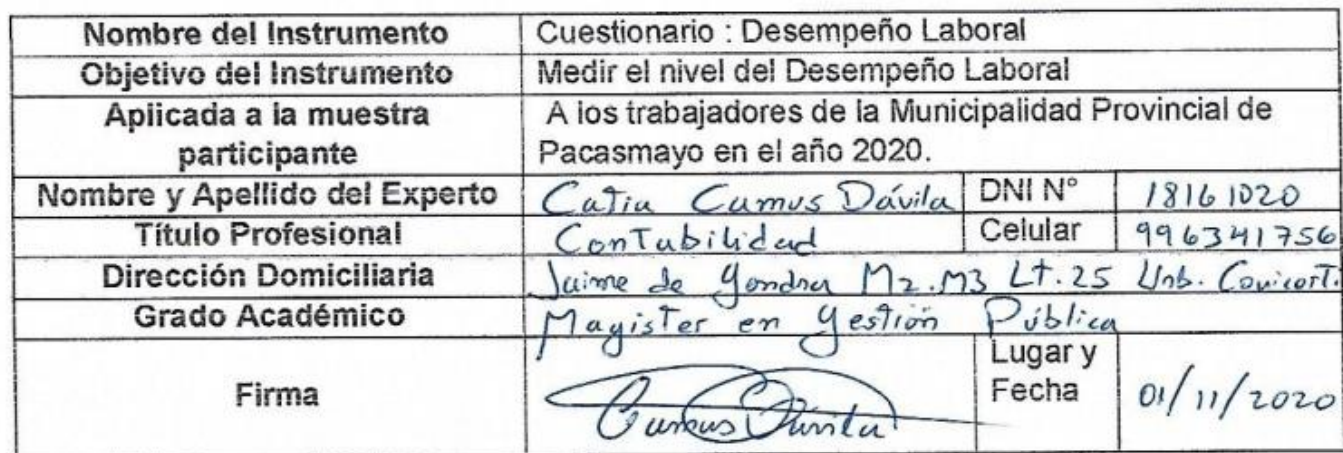 Nombre del Instrumento Cuestionario : Desempeño Laboral
Objetivo del Instrumento Medir el nivel del Desempeño Laboral
Aplicada a la muestra participante A los trabajadores de la Municipalidad Provincial de
Pacasmayo en el año 2020.
Nombre y Apellido del Experto Catia Camus Dávila DNI N° 18161020
Título Profesional Contabilidad Celular 996341756
Dirección Domiciliaria Jaime de Mz. M3 Lt. 25 Urb. Covicort.
Grado Académico Magister en Gestión Pública
Firma Camus Dávila Lugar y
Fecha 01/11/2020